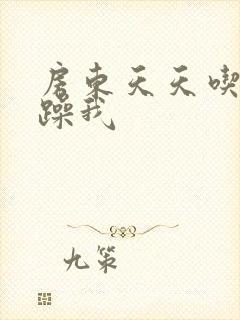 房东天天喫
躁我
九策